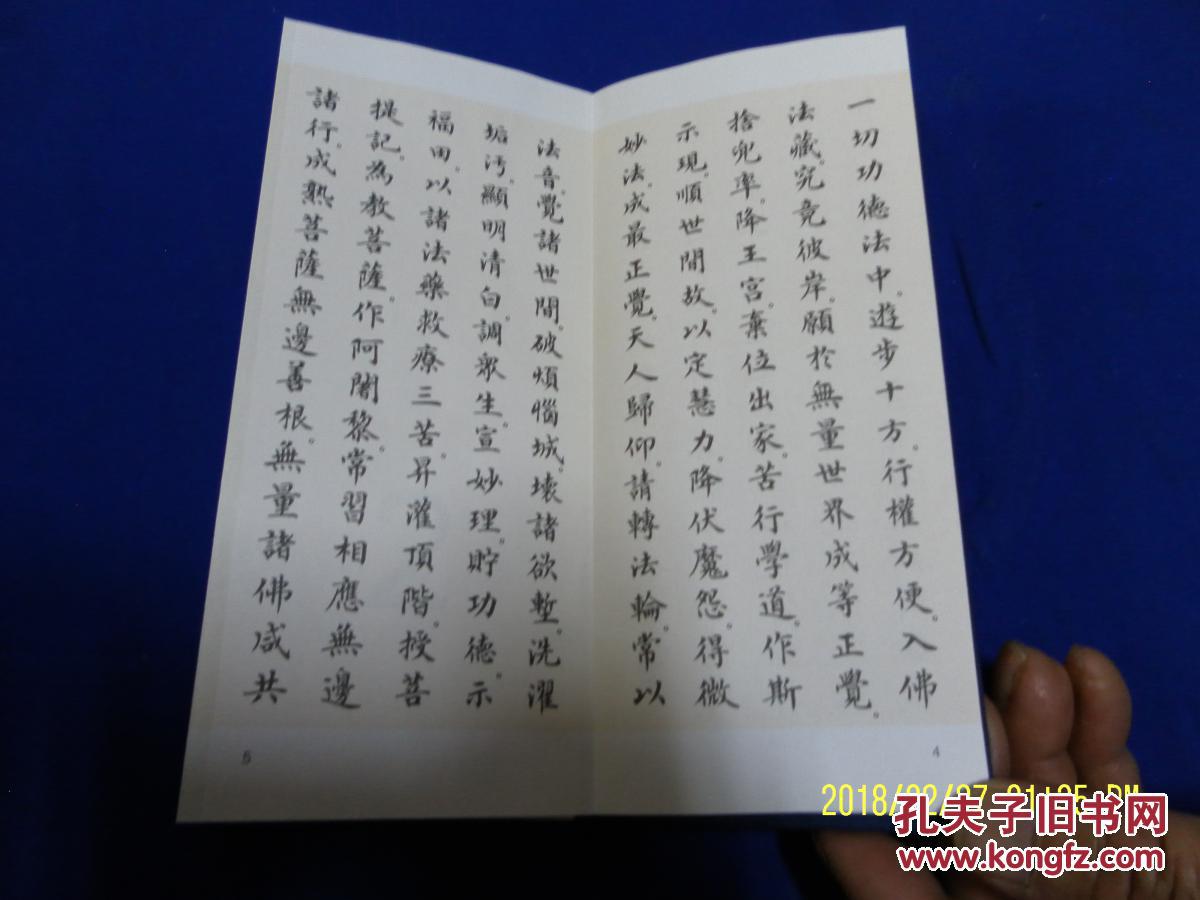 一切功德法中。遊步十方。行權方便。入佛
法藏。究竟彼岸。願於無量世界成等正覺。
捨兜率。降王宮。棄位出家。苦行學道。作斯
示現。順世間故。以定慧力。降伏魔怨。得微
妙法。成最正覺。天人歸仰。請轉法輪。常以
4
法音。覺諸世間。破煩惱城。壞諸欲塹。洗濯
垢污。顯明清白。調眾生。宣妙理。貯功德。示
福田。以諸法藥救療三苦。昇灌頂階。授菩
提記。為教菩薩。作阿闍黎。常習相應無邊
諸行。成熟菩薩無邊善根。無量諸佛咸共
5
孔夫子旧书网
www.kongfz.com